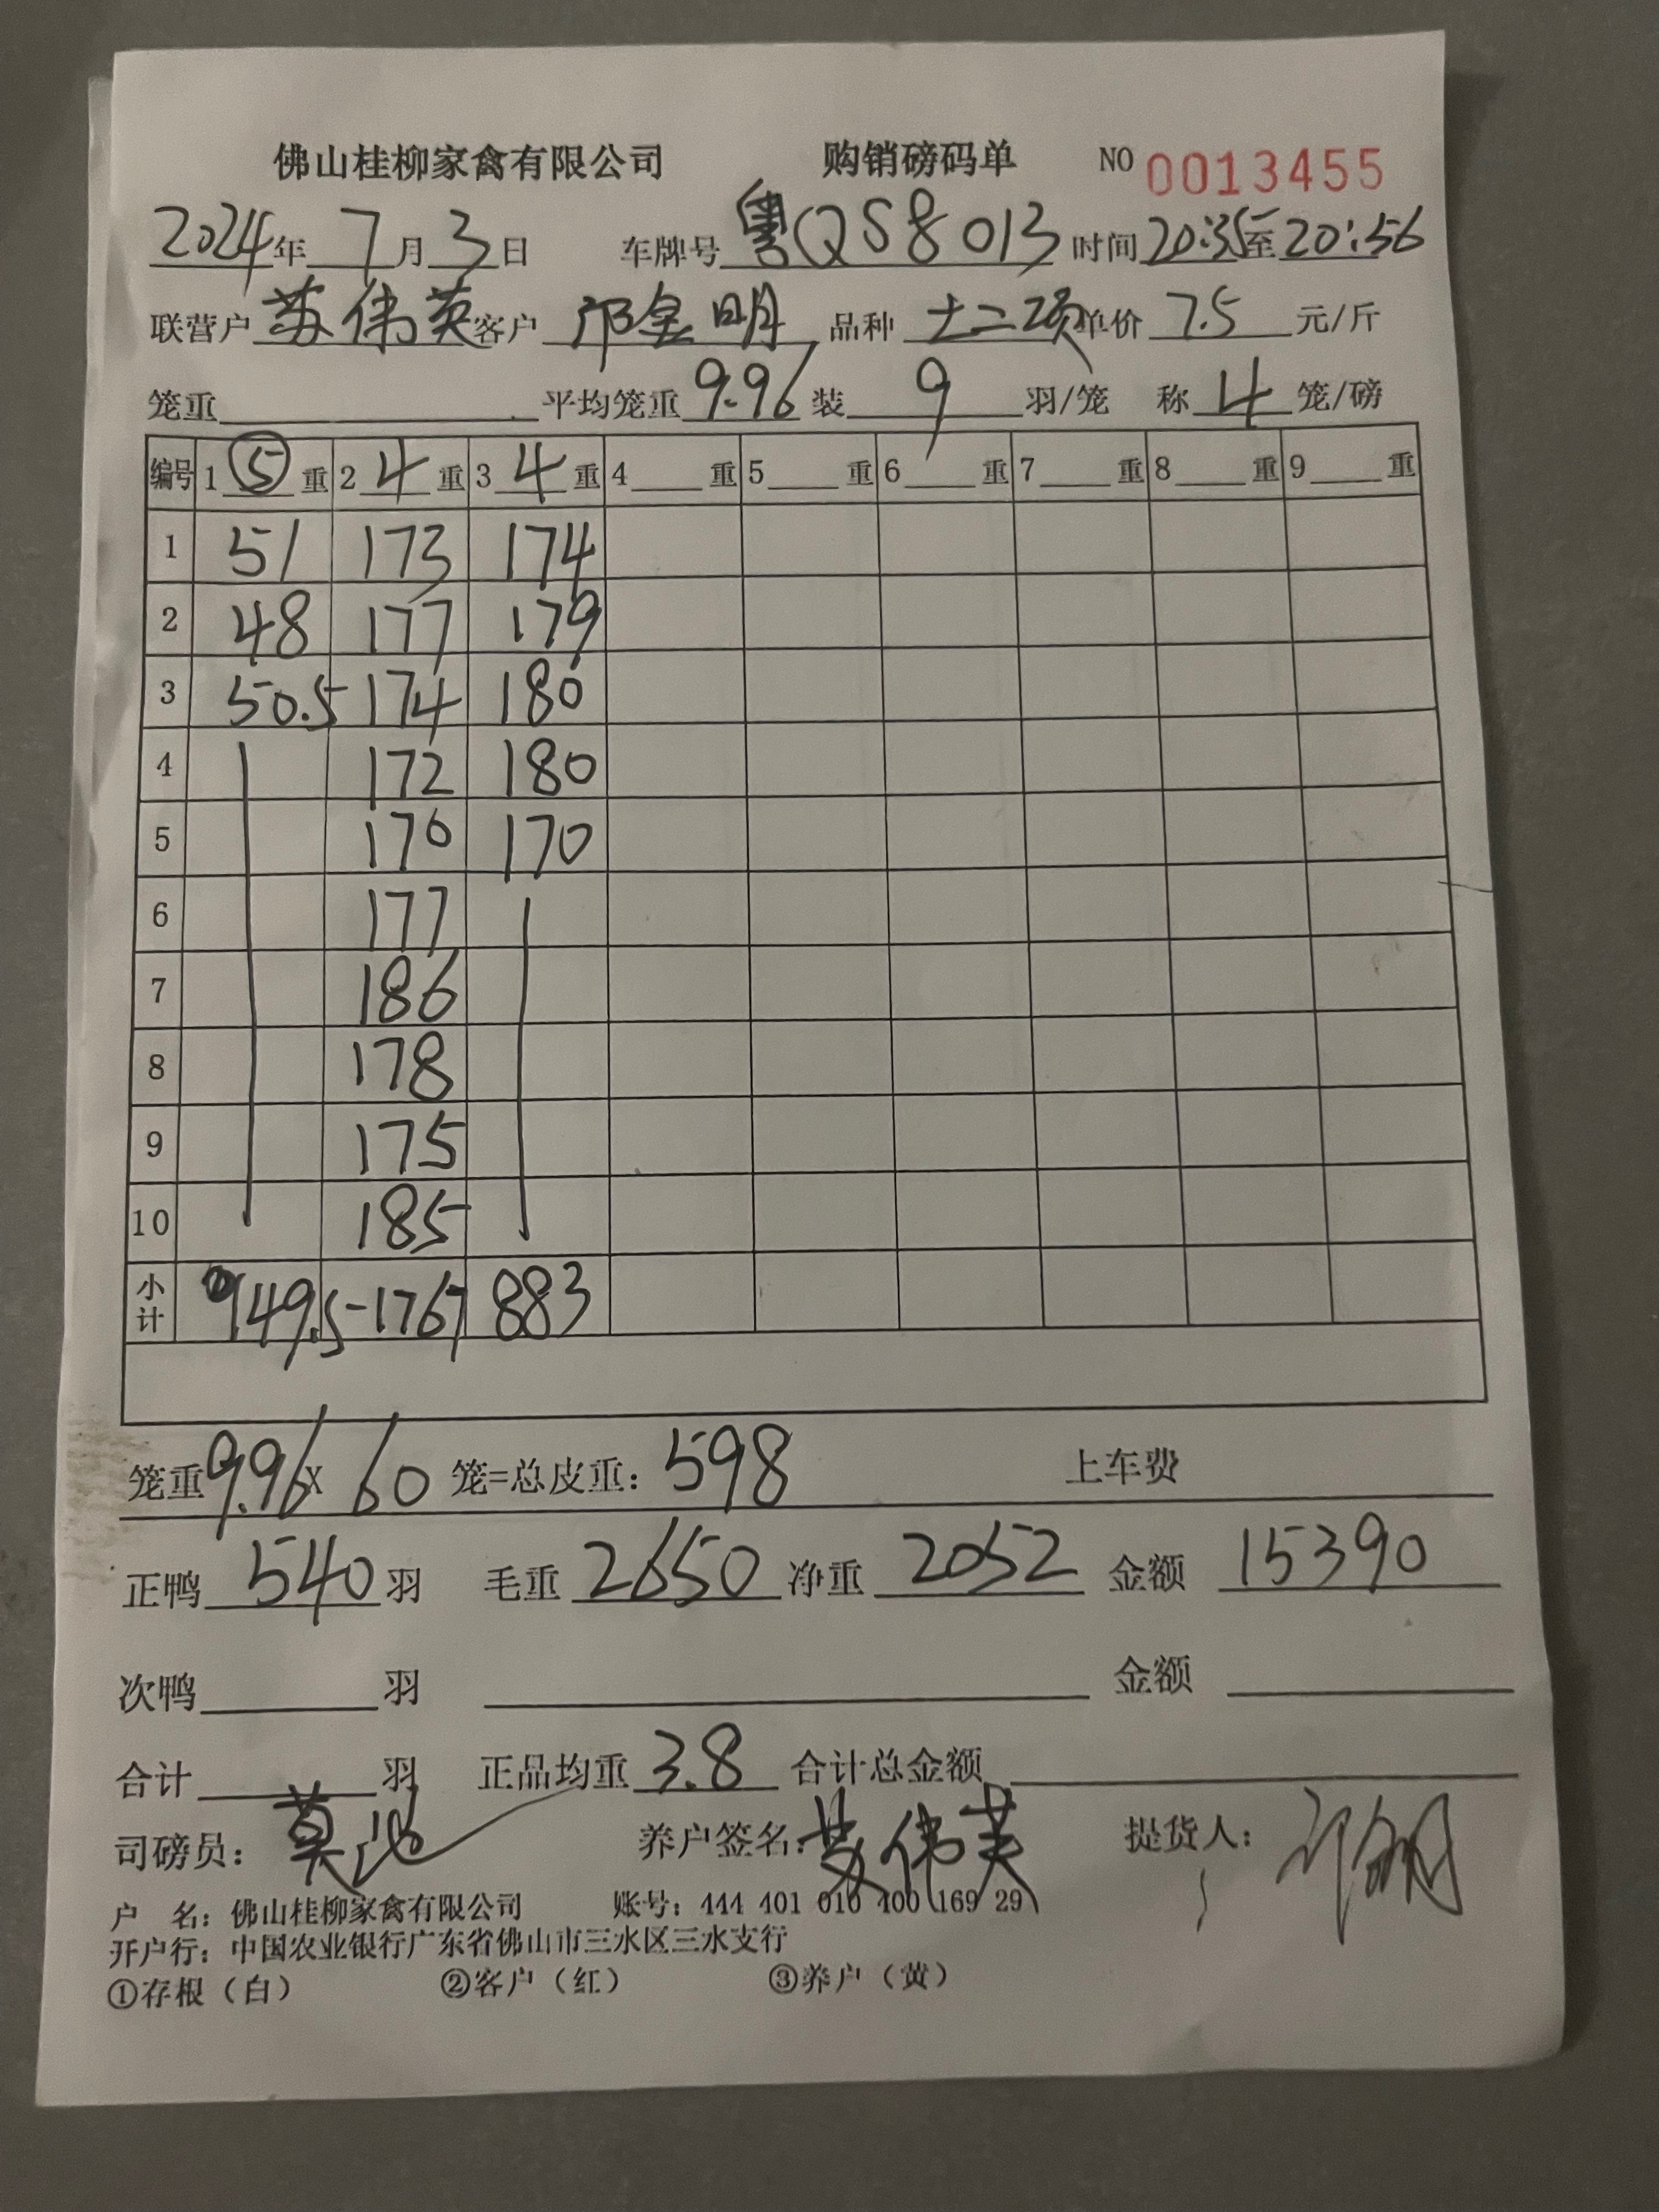 佛山桂柳家禽有限公司 购销磅码单 NO 0013455
2024年 7月 3日 车牌号 粤QS8013 时间 20:35至20:56
联营户 苏伟英 客户 邝金明 品种 土二项 单价 7.5 元/斤
笼重 平均笼重 9.96 装 9 羽/笼 称 4 笼/磅
编号 1 ⑤ 重 2 4 重 3 4 重 4 重 5 重 6 重 7 重 8 重 9 重
1 51 173 174
2 48 177 179
3 50.5 174 180
4 172 180
5 170 170
6 177
7 186
8 178
9 175
10 185
小计 149.5-1767 883
笼重 9.96 X 60 笼=总皮重: 598 上车费
正鸭 540 羽 毛重 2650 净重 2052 金额 15390
次鸭 羽 金额
合计 羽 正品均重 3.8 合计总金额
司磅员: 莫 养户签名: 苏伟英 提货人:
户 名: 佛山桂柳家禽有限公司 账号: 444 401 010 400 169 29
开户行: 中国农业银行广东省佛山市三水区三水支行
①存根（白） ②客户（红） ③养户（黄）